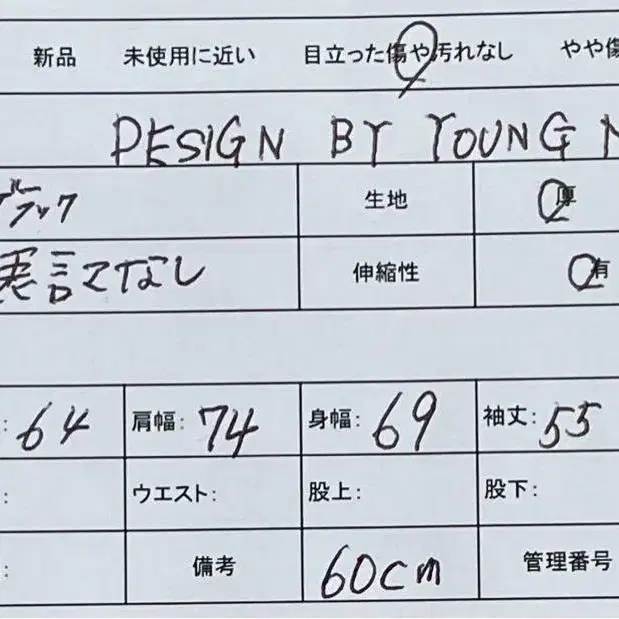 新品 未使用に近い 目立った傷や汚れなし やや傷
DESIGN BY YOUNG N
ブルー
ブラック 生地 厚
表記なし 伸縮性 有
: 64 肩幅: 74 身幅: 69 袖丈: 55
: ウエスト: 股上: 股下:
: 備考 60cm 管理番号